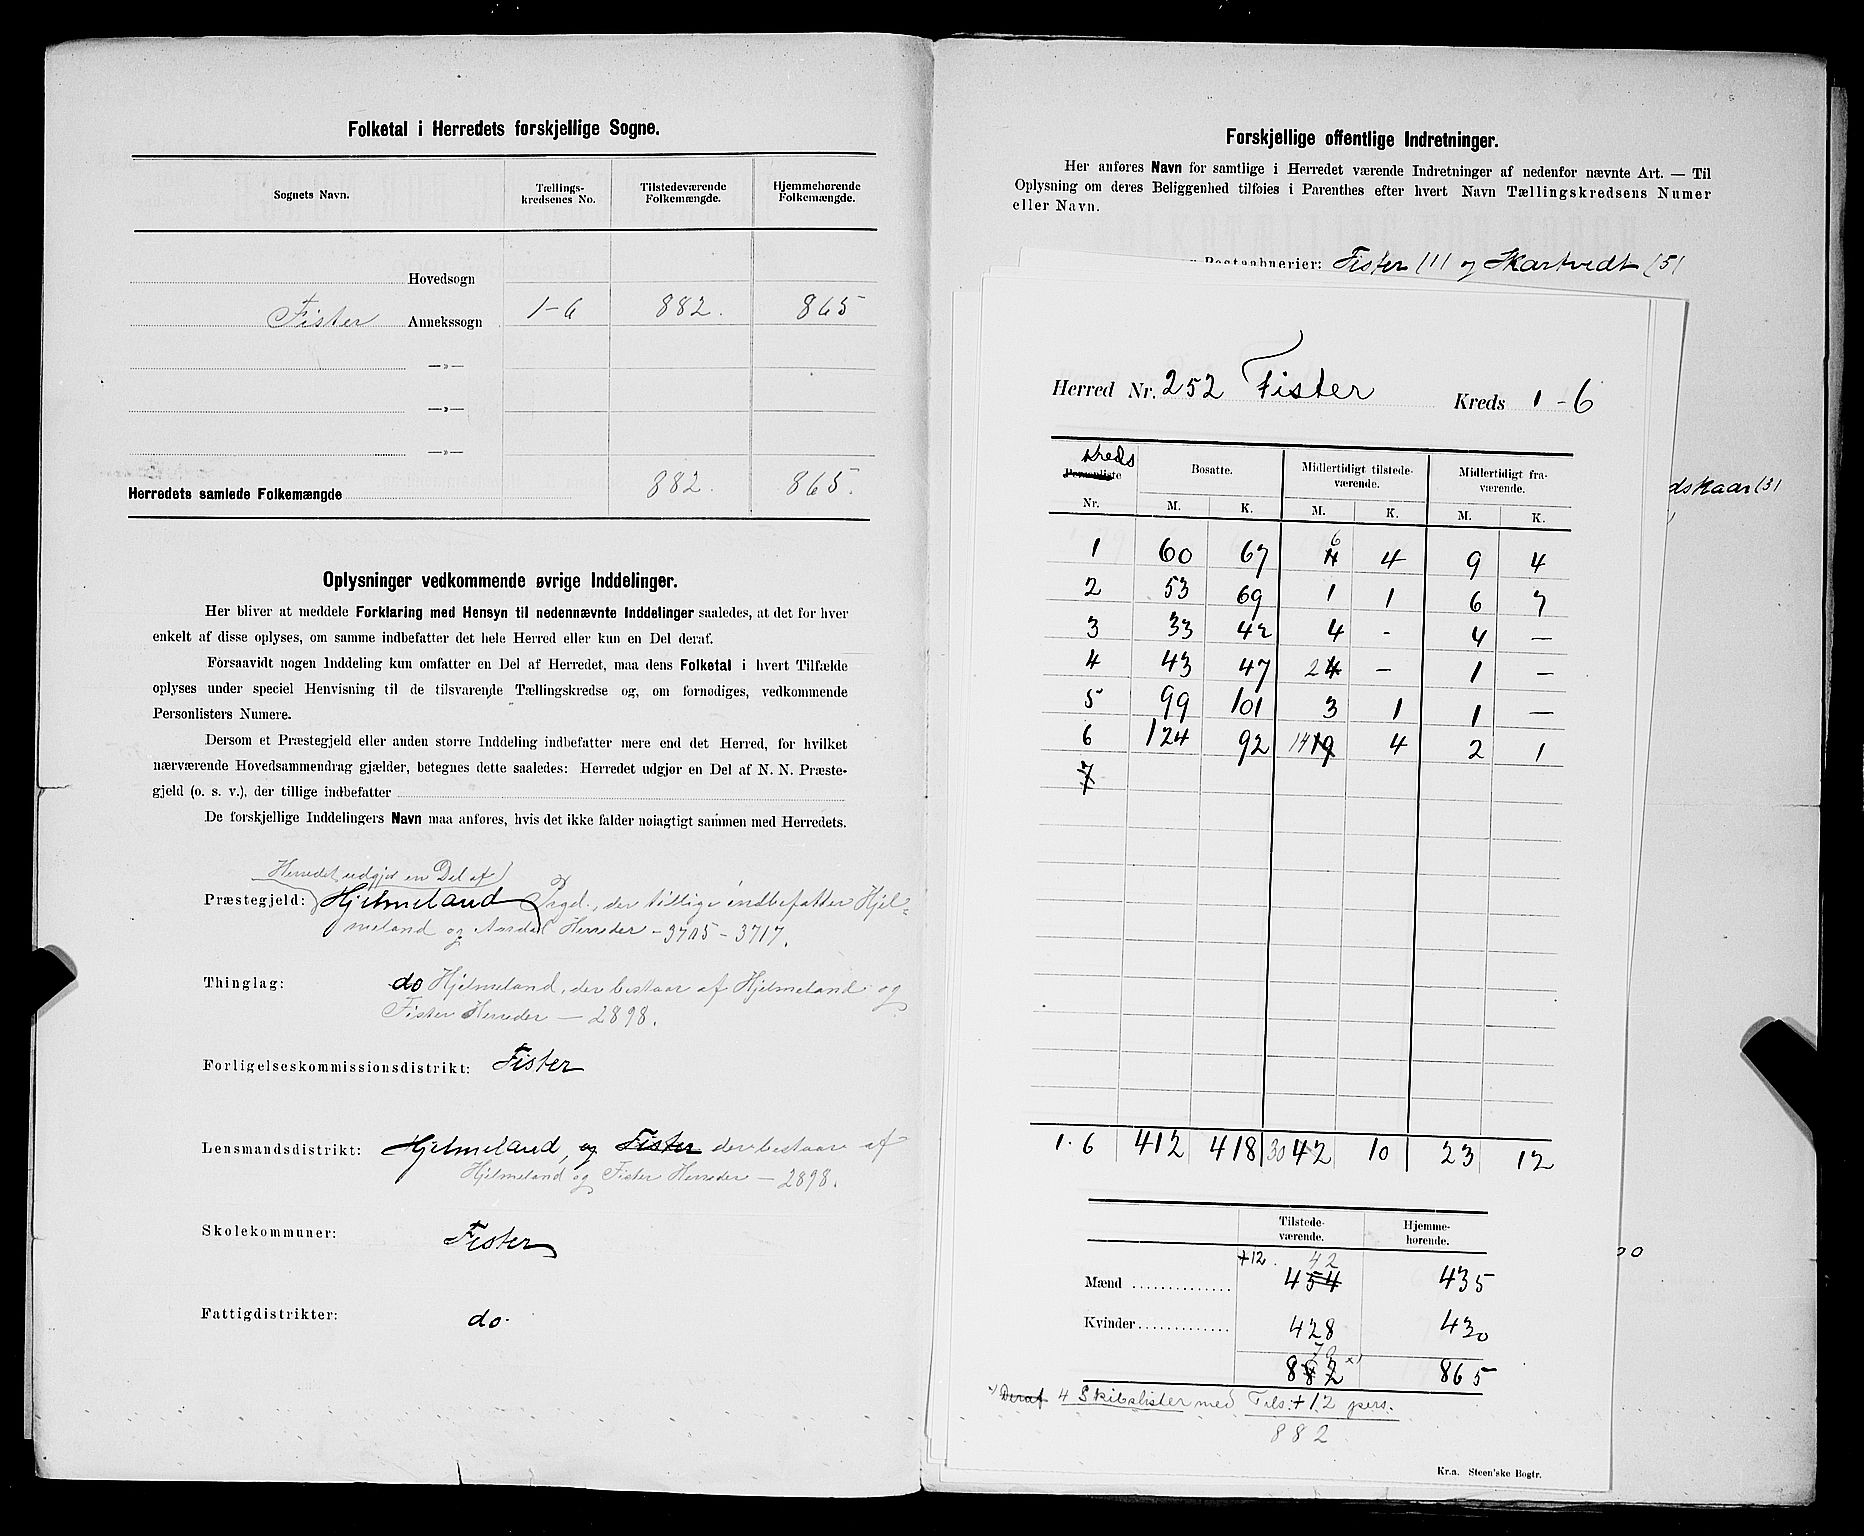 Folketal i Herredets forskjellige Sogne.
Sognets Navn. Tællings-kredsenes No. Tilstedeværende Folkemængde. Hjemmehørende Folkemængde.
Hovedsogn
Fister Annekssogn 1-6 882. 865
—»—
—»—
—»—
Herredets samlede Folkemængde 882. 865.
Oplysninger vedkommende øvrige Inddelinger.
Her bliver at meddele Forklaring med Hensyn til nedennævnte Inddelinger saaledes, at det for hver
enkelt af disse oplyses, om samme indbefatter det hele Herred eller kun en Del deraf.
Forsaavidt nogen Inddeling kun omfatter en Del af Herredet, maa dens Folketal i hvert Tilfælde
oplyses under speciel Henvisning til de tilsvarende Tællingskredse og, om fornødiges, vedkommende
Personlisters Numere.
Dersom et Præstegjeld eller anden større Inddeling indbefatter mere end det Herred, for hvilket
nærværende Hovedsammendrag gjælder, betegnes dette saaledes: Herredet udgjør en Del af N. N. Præste-
gjeld (o. s. v.), der tillige indbefatter
De forskjellige Inddelingers Navn maa anføres, hvis det ikke falder nøiagtigt sammen med Herredets.
Herredet udgjør en Del af
Præstegjeld: Hjelmeland Prgd., der tillige indbefatter Hjel-
meland og Aardal Herreder - 3705 - 3717.
Thinglag: do Hjelmeland, der bestaar af Hjelmeland og
Fister Herreder — 2898.
Forligelseskommissionsdistrikt: Fister
Lensmandsdistrikt: Hjelmeland, og Fister der bestaar af
Hjelmeland og Fister Herreder — 2898.
Skolekommuner: Fister
Fattigdistrikter: do.
Forskjellige offentlige Indretninger.
Her anføres Navn for samtlige i Herredet værende Indretninger af nedenfor nævnte Art. — Til
Oplysning om deres Beliggenhed tilføies i Parenthes efter hvert Navn Tællingskredsens Numer
eller Navn.
Postaabnerier: Fister (1) og Skartvedt (5)
dskaar (3)
Herred Nr. 252 Fister Kreds 1-6
Kreds
Personliste Nr. Bosatte. Midlertidigt tilstedeværende. Midlertidigt fraværende.
M. K. M. K. M. K.
1 60 67 6 4 4 9 4
2 53 69 1 1 6 7
3 33 42 4 - 4 —
4 43 47 2 4 — 1 —
5 99 101 3 1 1 —
6 124 92 14 19 4 2 1
7
1-6 412 418 30 42 10 23 12
Tilstedeværende. Hjemmehørende.
+12. 42
Mænd 454 435
Kvinder 428 430
70 x)
882 865
x) Deraf 4 Skibslister med Tils. +12 pers.
882
Kr.a. Steen'ske Bogtr.